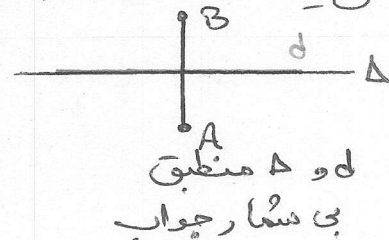 B
d
Δ
A
d و Δ منطبق
بی شمار جواب